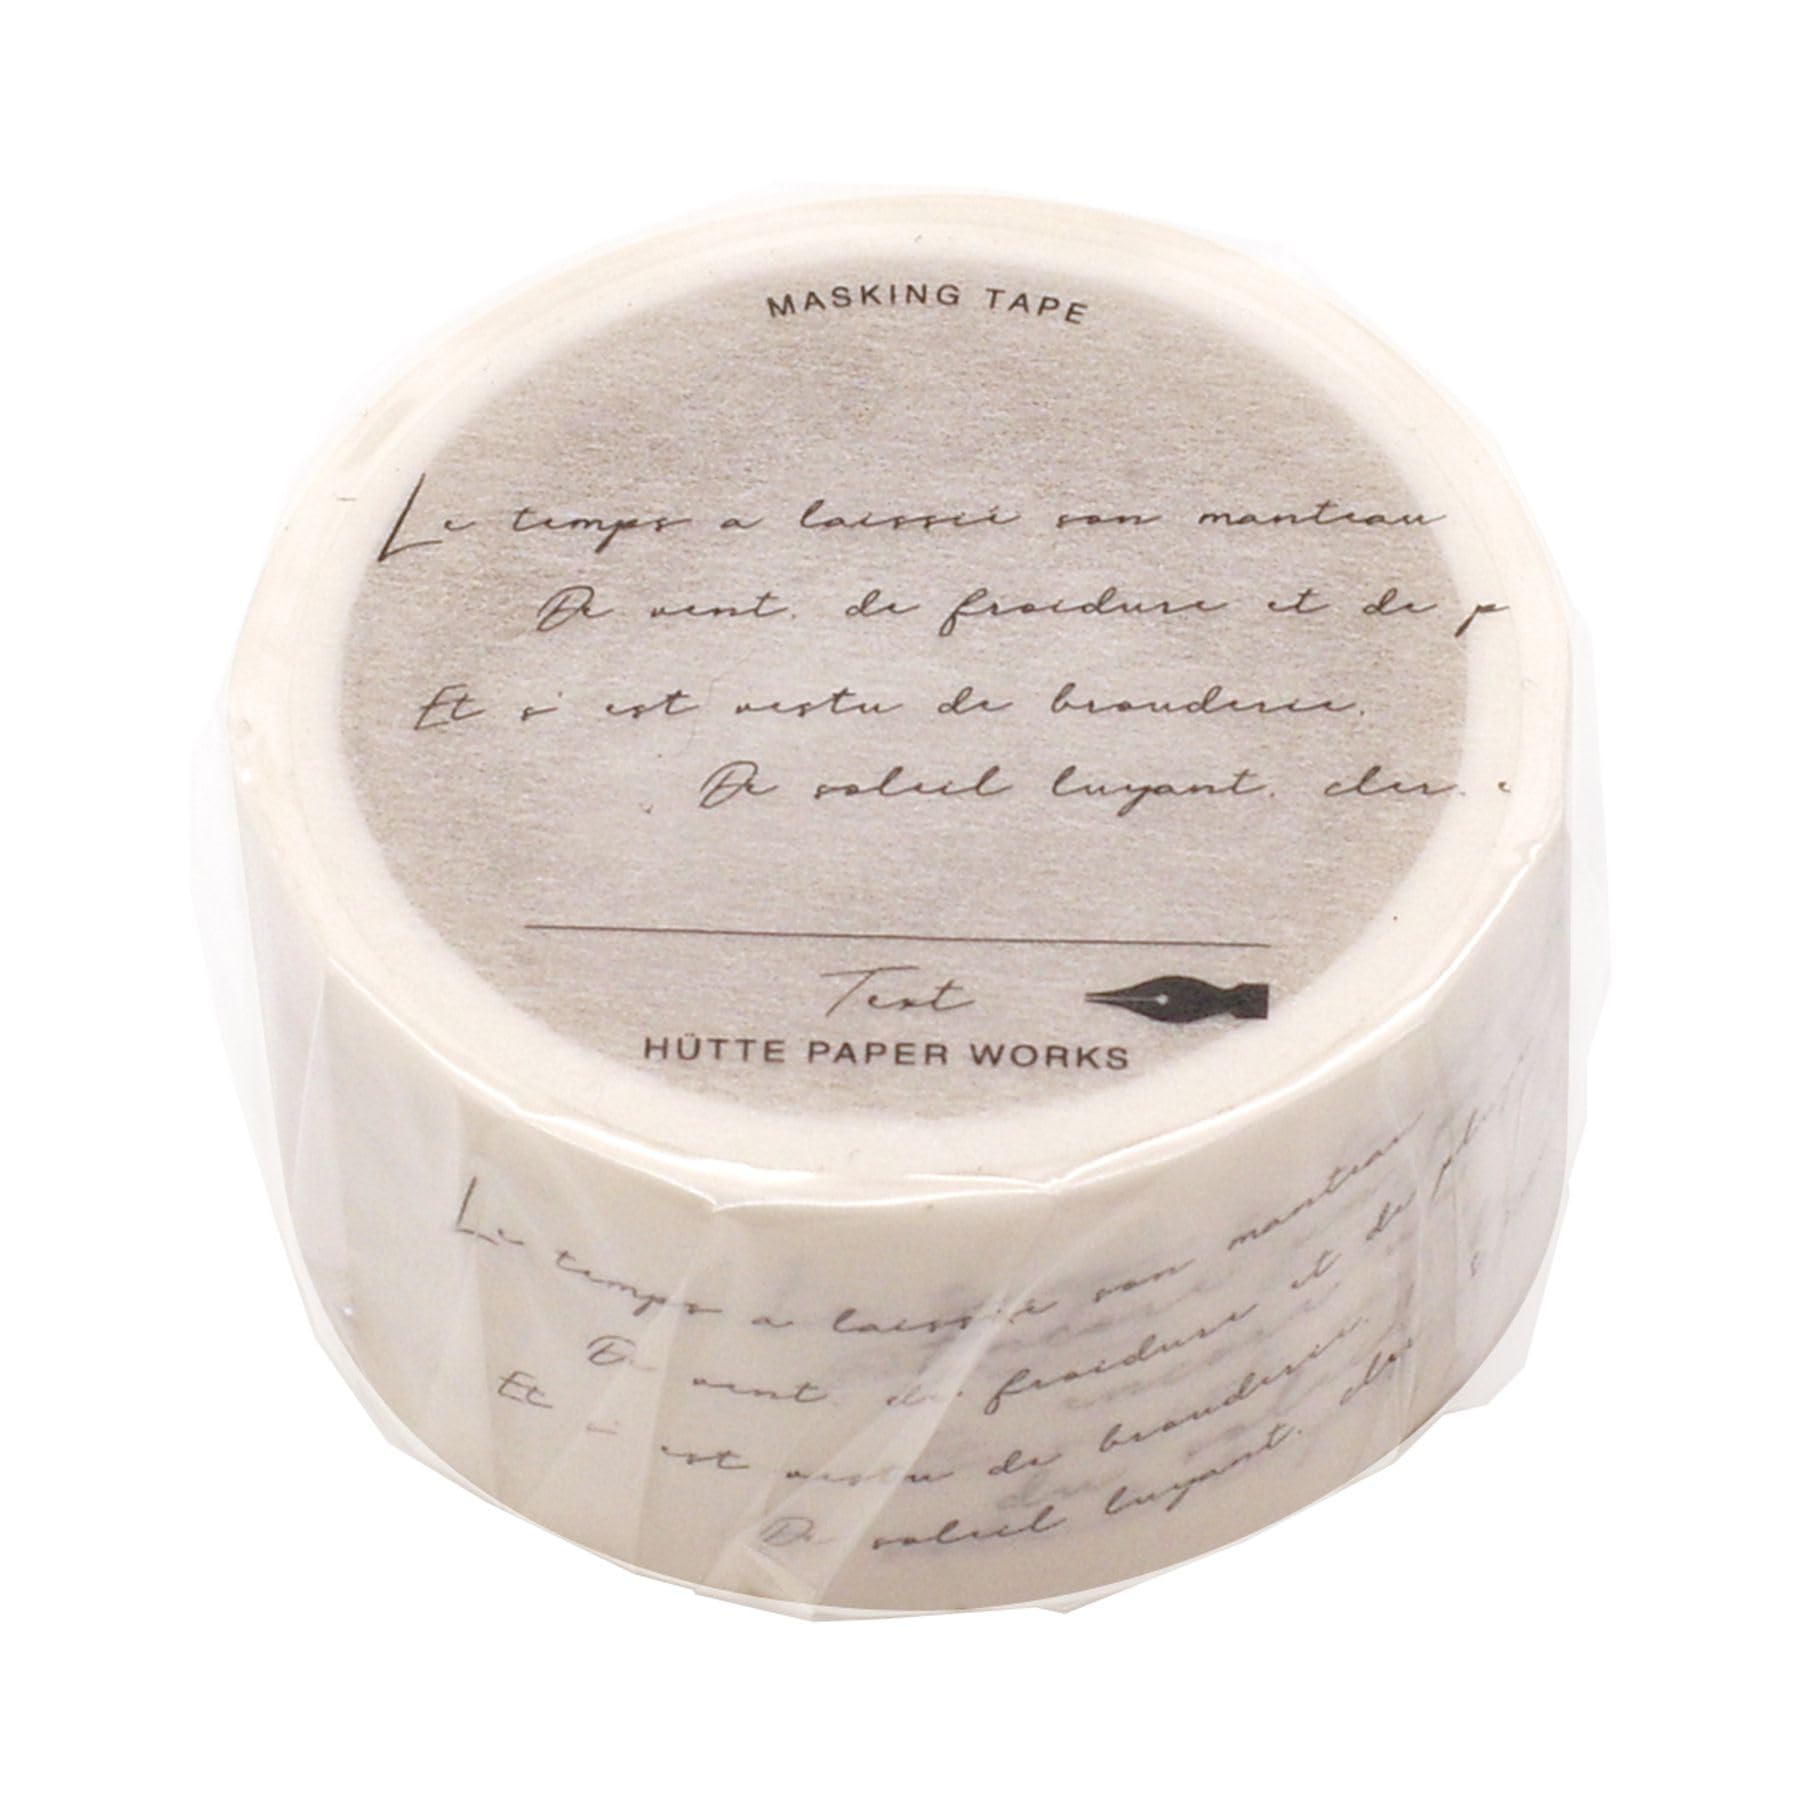 MASKING TAPE
Le temps a laissié son manteau
De vent, de froidure et de p
Et s'est vestu de brouderie,
De soleil luyant, cler, e
Text
HÜTTE PAPER WORKS
Le temps a laissié son manteau
De vent, de froidure et de plu
Et s'est vestu de brouderie,
De soleil luyant, cler